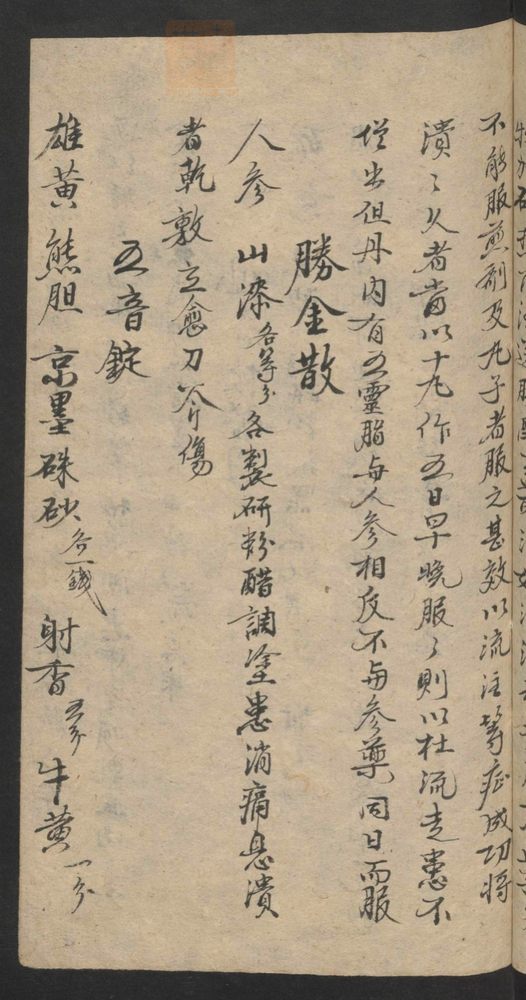 不能服煎剂及丸子者服之甚效以流注等症成功將
潰〻久者當以十丸作五日早晚服〻則以杜流走患不
增出但丹内有五靈脂与人参相反不与参藥同日而服
勝金散
人参 山漆各等分各製研粉醋調塗患消痛息潰
者乾敷立愈刀斧傷
五音錠
雄黄 熊胆 京墨 硃砂各一錢 射香五分 牛黄一分